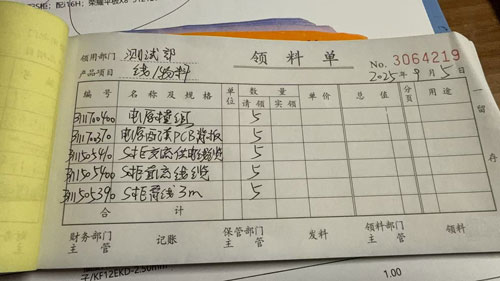 领用部门 测试部 领料单 No. 3064219
产品项目 线/物料 2025年9月5日
编号 名称及规格 单位 数量 请领 实领 单价 总值 分页 用途
311700400 电源模组 5
31170037 PCB背板 5
311505410 S柜交流供电线缆 5
311505400 S柜直流线缆 5
311505390 S柜 线3m 5
合计
一留存
财务部门主管 记账 保管部门主管 发料 领料部门主管 领料
子/KF12EKD-2.50mm
1.00